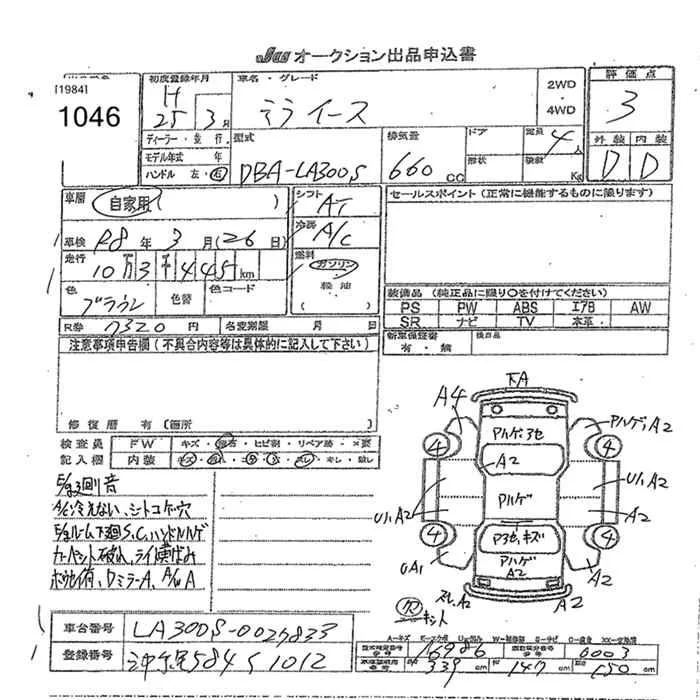 JU オークション出品申込書
[1984]
1046
初度登録年月
H 25年 3月
車名・グレード
ミライース
2WD
4WD
評価点
3
ディーラー・並行
モデル年式 年
ハンドル 左・右
型式
DBA-LA300S
排気量
660 cc
ドア
形状
定員
4人
積載
Kg
外装 内装
D D
車歴
自家用 ( )
シフト
AT
セールスポイント (正常に機能するものに限ります)
車検 R8年 3月 (26日)
冷房
A/C
走行
10万3千445km
燃料
ガソリン
軽油
色
ブラウン
色替
色コード
装備品 (純正品に限り○を付けてください)
PS PW ABS エアB AW
SR ナビ TV 本革
R券 7320円
名変期限 月 日
新車保証書
有・無
検査品
注意事項申告欄 (不具合内容等は具体的に記入して下さい)
修復歴 有 (箇所
検査員
記入欄
FW キズ・飛石・ヒビ割・リペア跡・×要
内装
E/g3回り音
A/C冷えない、シートコゲ・穴
E/gルーム下回S.C,ハンドルハゲ
下A
A4
Pハゲ3色
Pハゲ,A2
4
4
A2
U1,A2
U1,A2
Pハゲ
A2
4
4
P3色,キズ
Pハゲ
A2
UA1
A2
スレ,A2
A2
欠
キット
車台番号
LA300S-0025833
登録番号
沖縄 584 く 1012
A-キズ
型式指定番号
16986
類別区分番号
0003
339 cm
147 cm
150 cm